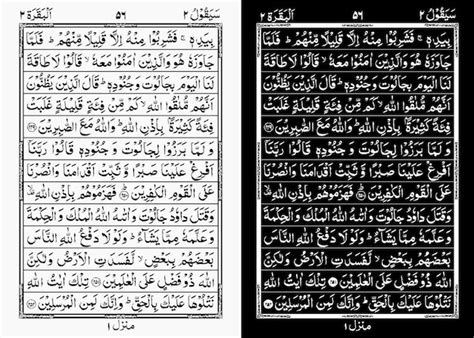 سَيَقُوْلُ ٢ ٥٦ اَلْبَقَرَة ٢
بِيَدِهٖ ۚ فَشَرِبُوْا مِنْهُ اِلَّا قَلِيْلًا مِّنْهُمْ ؕ فَلَمَّا
جَاوَزَهٗ هُوَ وَالَّذِيْنَ اٰمَنُوْا مَعَهٗ ۙ قَالُوْا لَا طَاقَةَ
لَنَا الْيَوْمَ بِجَالُوْتَ وَجُنُوْدِهٖ ؕ قَالَ الَّذِيْنَ يَظُنُّوْنَ
اَنَّهُمْ مُّلٰقُوا اللّٰهِ ۙ كَمْ مِّنْ فِئَةٍ قَلِيْلَةٍ غَلَبَتْ
فِئَةً كَثِيْرَةًۢ بِاِذْنِ اللّٰهِ ؕ وَاللّٰهُ مَعَ الصّٰبِرِيْنَ ٢٤٩
وَلَمَّا بَرَزُوْا لِجَالُوْتَ وَجُنُوْدِهٖ قَالُوْا رَبَّنَاۤ
اَفْرِغْ عَلَيْنَا صَبْرًا وَّثَبِّتْ اَقْدَامَنَا وَانْصُرْنَا
عَلَى الْقَوْمِ الْكٰفِرِيْنَ ٢٥٠ فَهَزَمُوْهُمْ بِاِذْنِ اللّٰهِ
وَقَتَلَ دَاوٗدُ جَالُوْتَ وَاٰتٰىهُ اللّٰهُ الْمُلْكَ وَالْحِكْمَةَ
وَعَلَّمَهٗ مِمَّا يَشَآءُ ؕ وَلَوْ لَا دَفْعُ اللّٰهِ النَّاسَ
بَعْضَهُمْ بِبَعْضٍ ۙ لَّفَسَدَتِ الْاَرْضُ وَلٰكِنَّ
اللّٰهَ ذُوْ فَضْلٍ عَلَى الْعٰلَمِيْنَ ٢٥١ تِلْكَ اٰيٰتُ اللّٰهِ
نَتْلُوْهَا عَلَيْكَ بِالْحَقِّ ؕ وَاِنَّكَ لَمِنَ الْمُرْسَلِيْنَ ٢٥٢
منزل ١
سَيَقُوْلُ ٢ ٥٦ اَلْبَقَرَة ٢
بِيَدِهٖ ۚ فَشَرِبُوْا مِنْهُ اِلَّا قَلِيْلًا مِّنْهُمْ ؕ فَلَمَّا
جَاوَزَهٗ هُوَ وَالَّذِيْنَ اٰمَنُوْا مَعَهٗ ۙ قَالُوْا لَا طَاقَةَ
لَنَا الْيَوْمَ بِجَالُوْتَ وَجُنُوْدِهٖ ؕ قَالَ الَّذِيْنَ يَظُنُّوْنَ
اَنَّهُمْ مُّلٰقُوا اللّٰهِ ۙ كَمْ مِّنْ فِئَةٍ قَلِيْلَةٍ غَلَبَتْ
فِئَةً كَثِيْرَةًۢ بِاِذْنِ اللّٰهِ ؕ وَاللّٰهُ مَعَ الصّٰبِرِيْنَ ٢٤٩
وَلَمَّا بَرَزُوْا لِجَالُوْتَ وَجُنُوْدِهٖ قَالُوْا رَبَّنَاۤ
اَفْرِغْ عَلَيْنَا صَبْرًا وَّثَبِّتْ اَقْدَامَنَا وَانْصُرْنَا
عَلَى الْقَوْمِ الْكٰفِرِيْنَ ٢٥٠ فَهَزَمُوْهُمْ بِاِذْنِ اللّٰهِ
وَقَتَلَ دَاوٗدُ جَالُوْتَ وَاٰتٰىهُ اللّٰهُ الْمُلْكَ وَالْحِكْمَةَ
وَعَلَّمَهٗ مِمَّا يَشَآءُ ؕ وَلَوْ لَا دَفْعُ اللّٰهِ النَّاسَ
بَعْضَهُمْ بِبَعْضٍ ۙ لَّفَسَدَتِ الْاَرْضُ وَلٰكِنَّ
اللّٰهَ ذُوْ فَضْلٍ عَلَى الْعٰلَمِيْنَ ٢٥١ تِلْكَ اٰيٰتُ اللّٰهِ
نَتْلُوْهَا عَلَيْكَ بِالْحَقِّ ؕ وَاِنَّكَ لَمِنَ الْمُرْسَلِيْنَ ٢٥٢
منزل ١